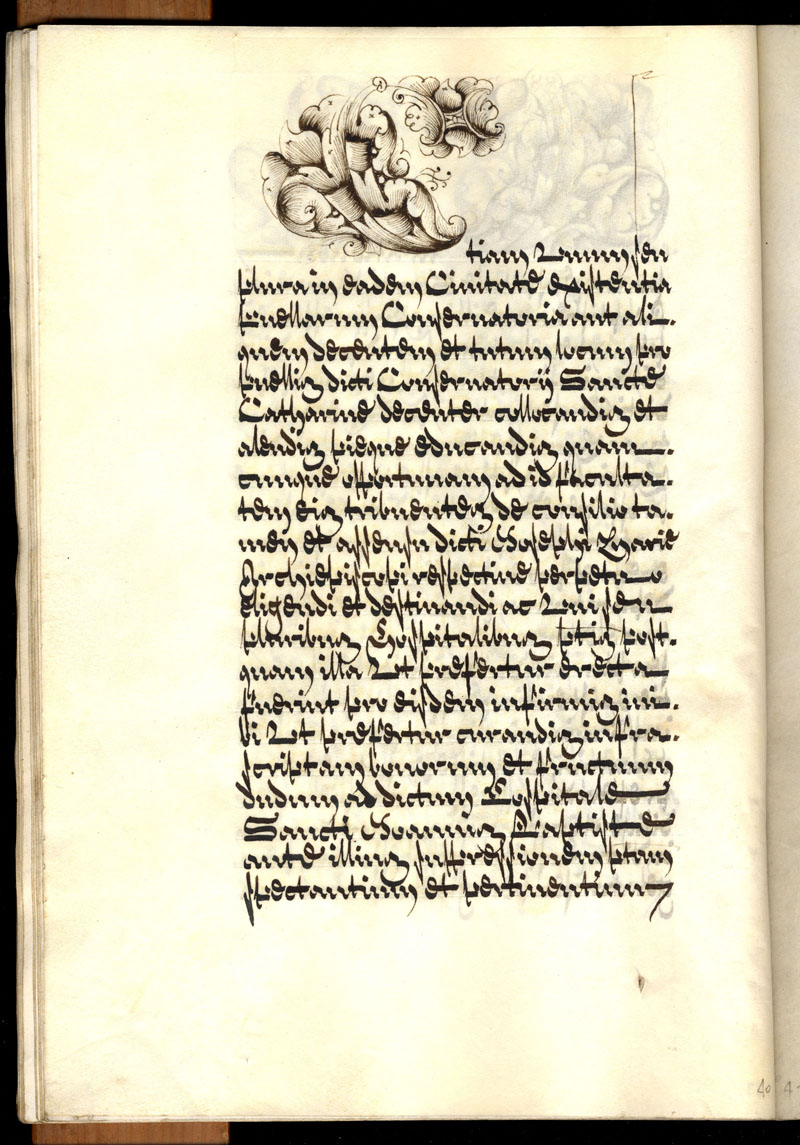 E
tiam Unum seu
plura in eadem Civitate existentia
Puellarum Conservatoria aut ali.
quem decentem et tutum locum pro
puellis dicti Conservatorij Sancte
Catharine decenter collocandis et
alendis pieque educandis quam.
cunque opportunam ad id faculta.
tem eis tribuentes de consilio ta.
men et assensu dicti Joseph Marie
Archiepiscopi respective perpetuo
eligendi et destinandi ac Uni seu
pluribus Hospitalibus ptis post.
quam illa Ut prefertur erecta
fuerint pro eisdem infirmis ini.
bi Ut prefertur curandis infra.
scriptam bonorum et fructuum
dudum ad dictum Hospitale
Sancti Joannis Baptiste
ante illius suppressionem ptam
spectantium et pertinentium
40 4